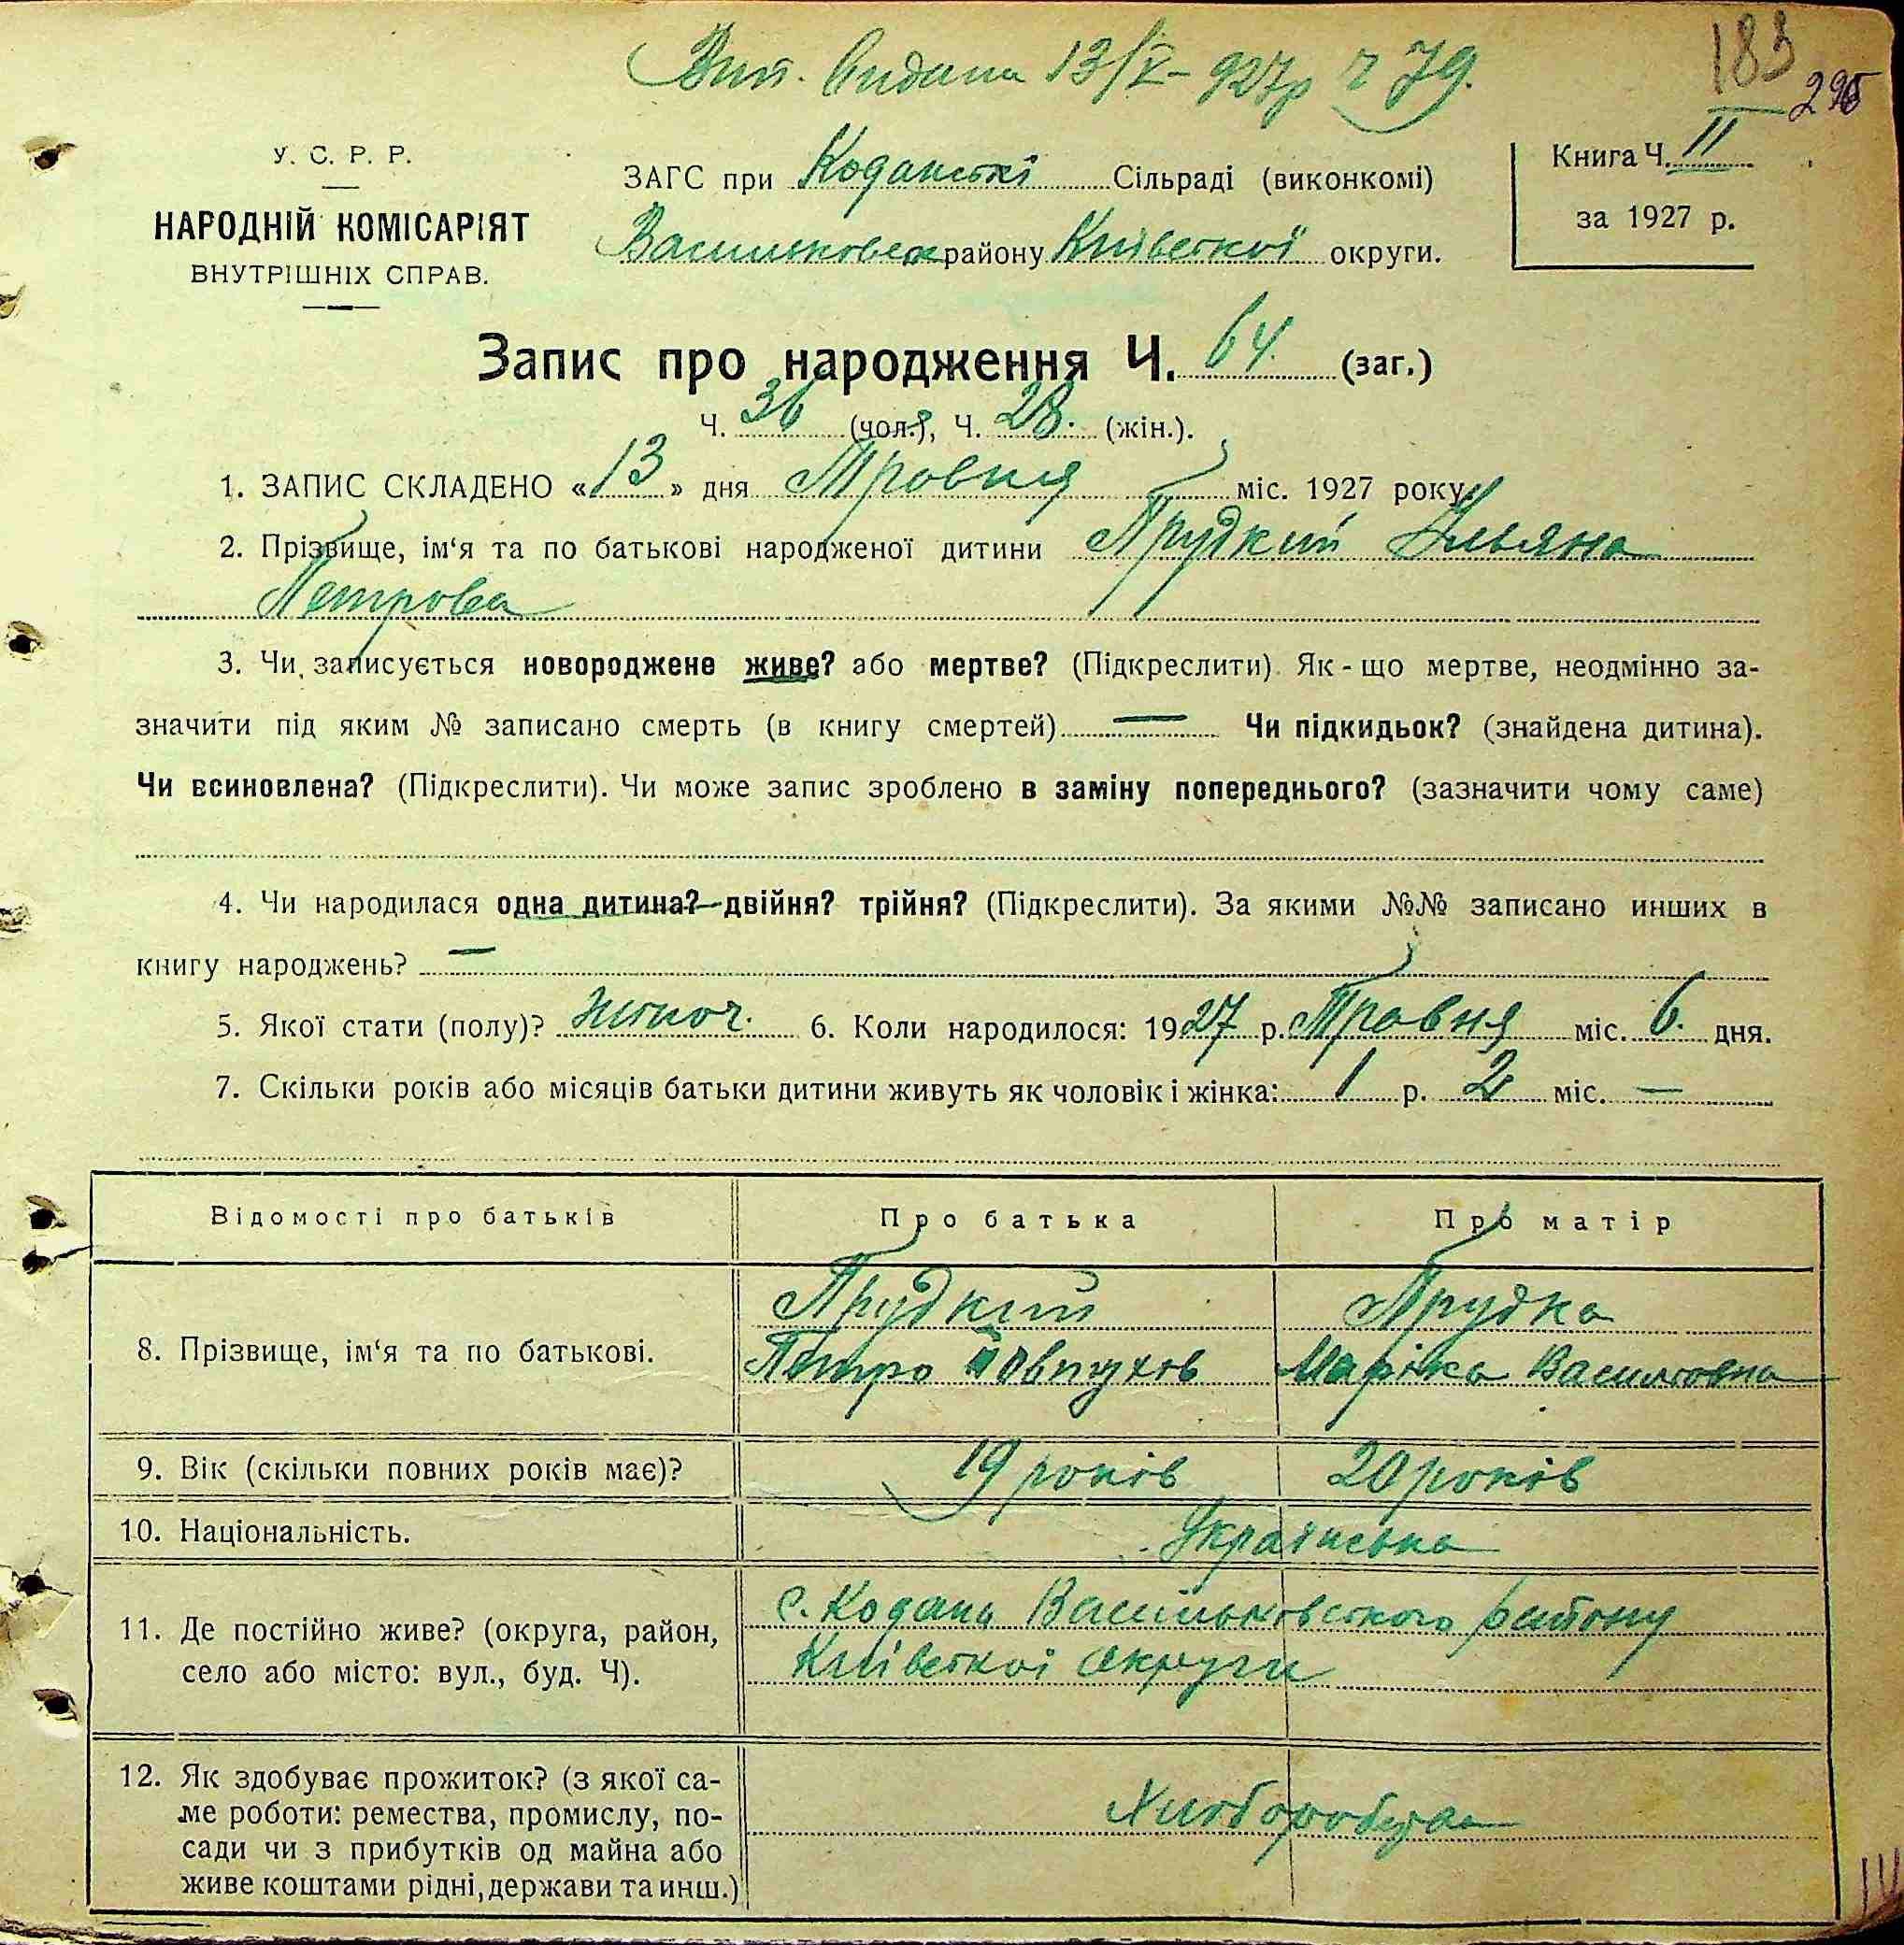 Вип. видана 13/V-927р ч 79.
183
295
У. С. Р. Р.
НАРОДНІЙ КОМІСАРІЯТ
ВНУТРІШНІХ СПРАВ.
ЗАГС при Коданські Сільраді (виконкомі)
Васильковськ району Київської округи.
Книга Ч. II
за 1927 р.
Запис про народження Ч. 64. (заг.)
Ч. 36 (чол.), Ч. 28. (жін.).
1. ЗАПИС СКЛАДЕНО «13» дня Травня міс. 1927 року
2. Прізвище, ім‘я та по батькові народженої дитини Прудкий Ульяна
Петрова
3. Чи записується новороджене живе? або мертве? (Підкреслити). Як-що мертве, неодмінно за-
значити під яким № записано смерть (в книгу смертей) — Чи підкидьок? (знайдена дитина).
Чи всиновлена? (Підкреслити). Чи може запис зроблено в заміну попереднього? (зазначити чому саме)
4. Чи народилася одна дитина? двійня? трійня? (Підкреслити). За якими №№ записано инших в
книгу народжень? —
5. Якої стати (полу)? жіноч. 6. Коли народилося: 1927 р. Травня міс. 6. дня.
7. Скільки років або місяців батьки дитини живуть як чоловік і жінка: 1 р. 2 міс. —
Відомості про батьків Про батька Про матір
8. Прізвище, ім‘я та по батькові.
Прудкий Прудка
Петро Ювтухів Марійка Василівна
9. Вік (скільки повних років має)? 19 років 20 років
10. Національність. Українська
11. Де постійно живе? (округа, район,
село або місто: вул., буд. Ч).
с. Кодань Васильковського району
Київської округи
12. Як здобуває прожиток? (з якої са-
ме роботи: ремества, промислу, по-
сади чи з прибутків од майна або
живе коштами рідні, держави та инш.)